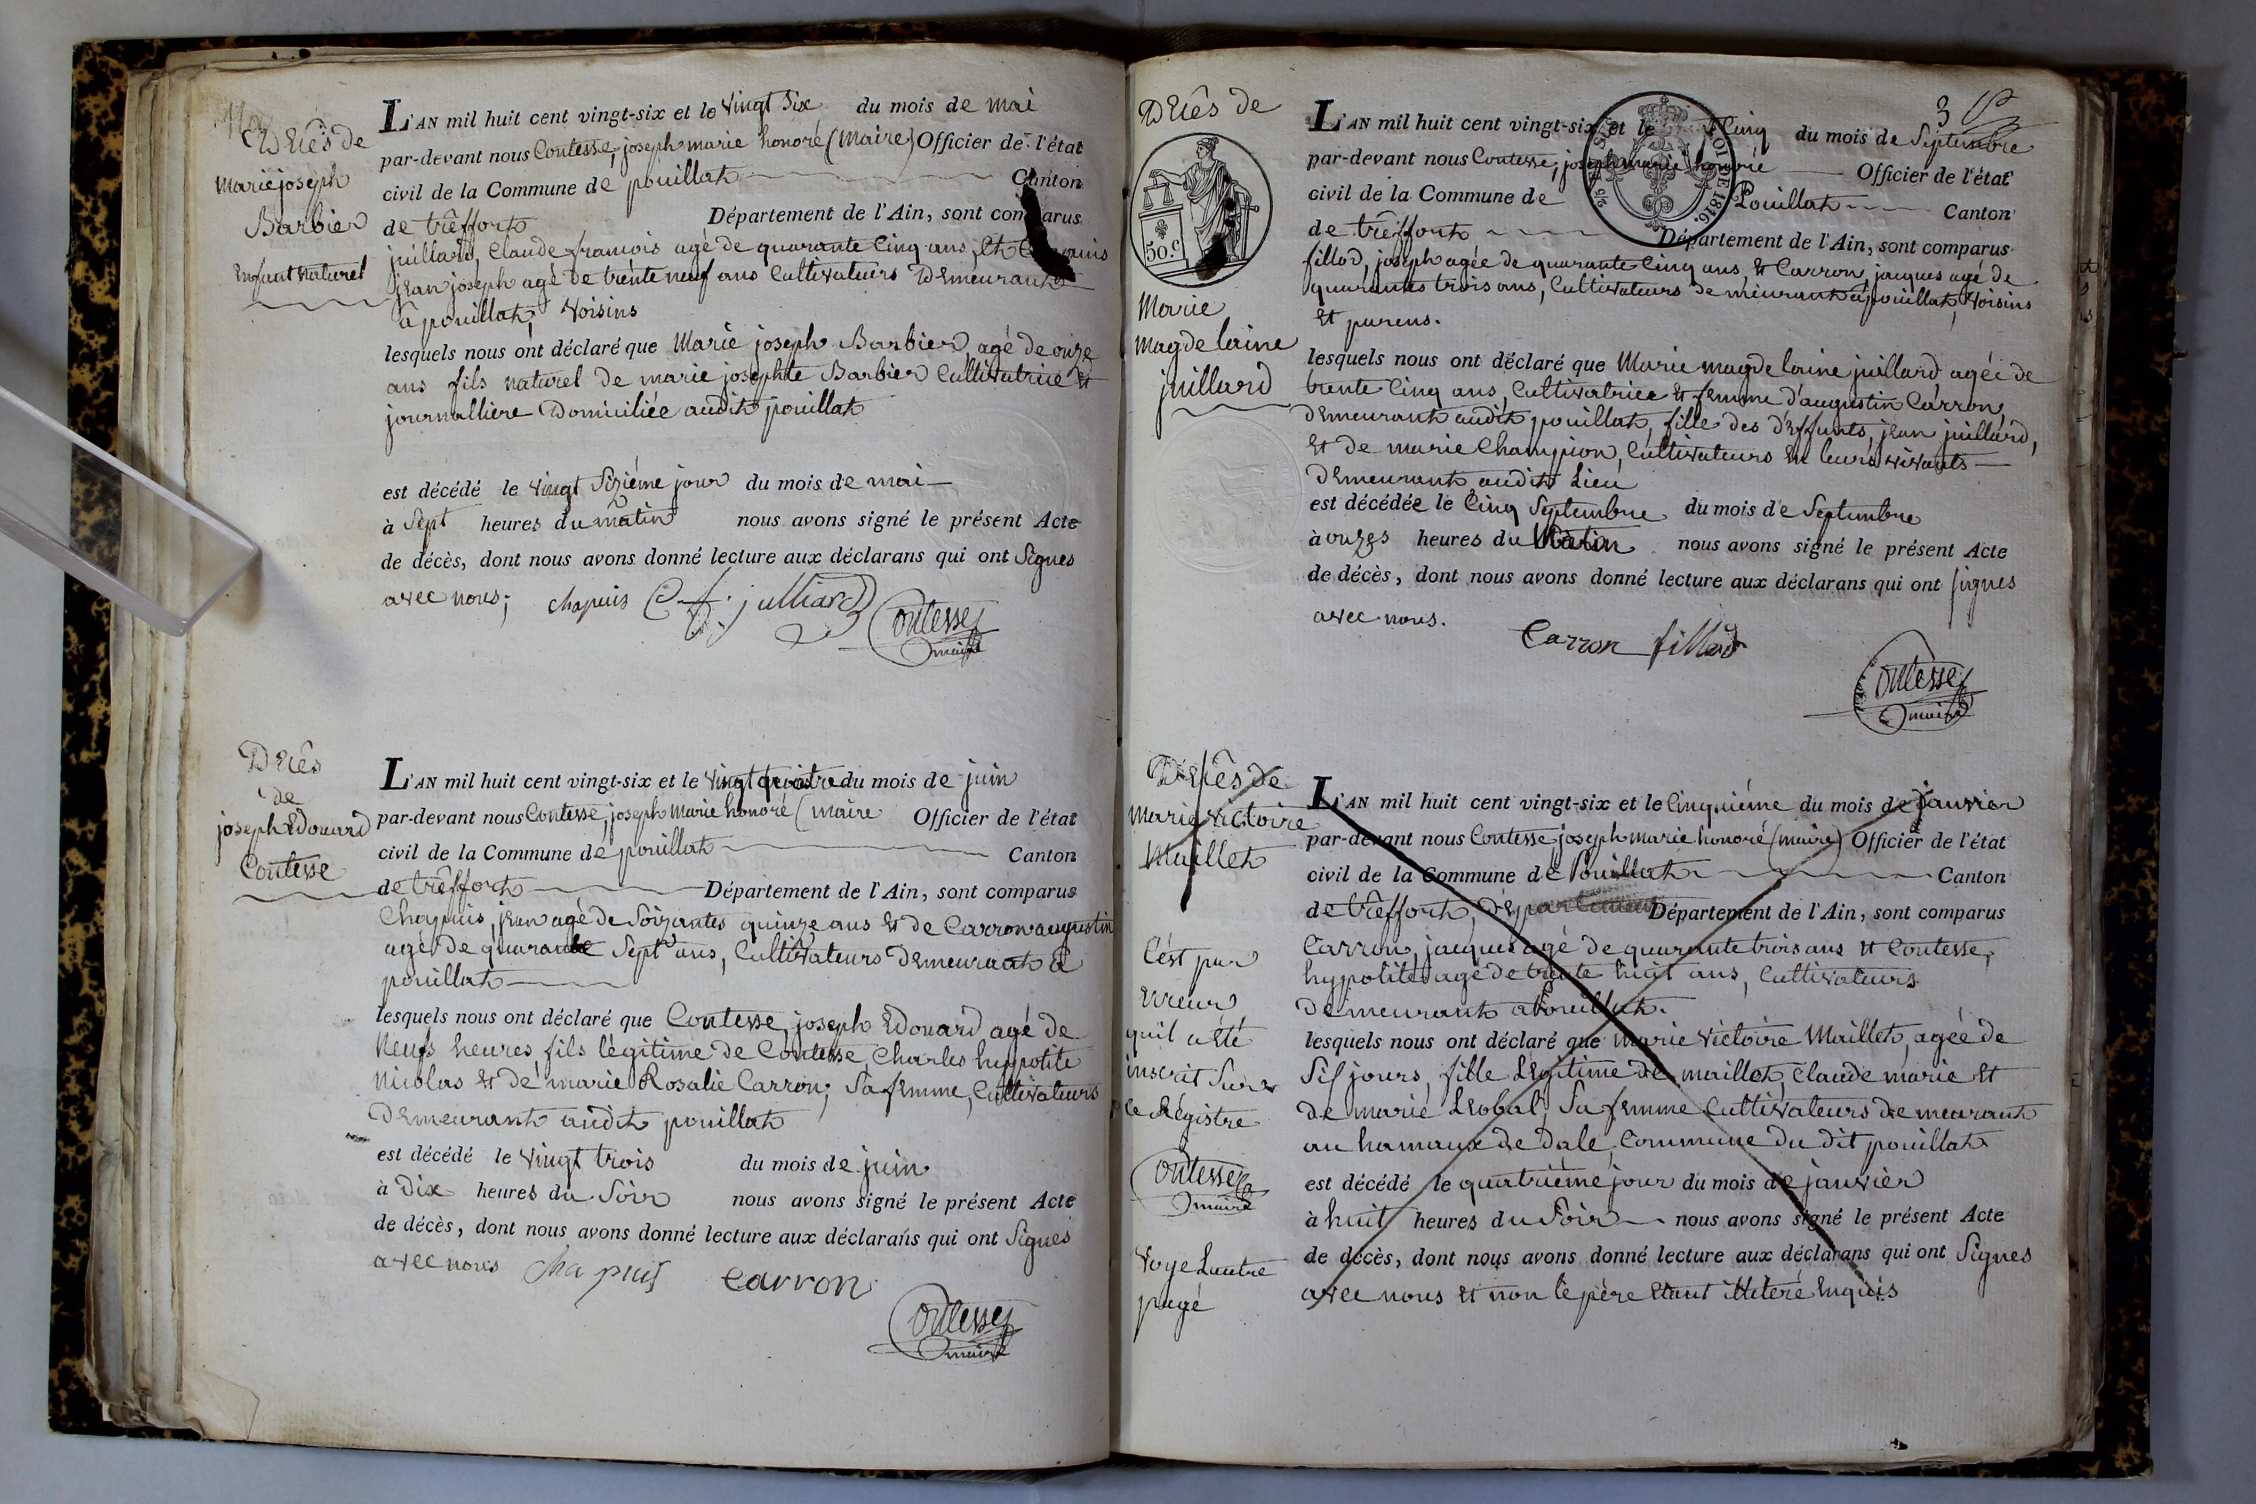 Décès de
Marie joseph
Barbier
Enfant naturel
L'AN mil huit cent vingt-six et le vingt Six du mois de mai
par-devant nous Contesse, joseph marie honoré (maire) Officier de l'état
civil de la Commune de pouillat Canton
de trêffort Département de l'Ain, sont comparus
juillard, Claude francois agé de quarante Cinq ans, Et
jean joseph agé de trente neuf ans Cultivateurs Demeurants
à pouillat, Voisins
lesquels nous ont déclaré que Marie joseph Barbier agé de onze
ans fils naturel de marie josephte Barbier Cultivatrice et
journalliere Domiciliée audit pouillat
est décédé le vingt Sixiéme jour du mois de mai
à Sept heures du matin nous avons signé le présent Acte
de décès, dont nous avons donné lecture aux déclarans qui ont Signés
avec nous; chapuis C f. julliard Contesse
maire
Décès
de
joseph Edouard
Contesse
L'AN mil huit cent vingt-six et le vingt quatre du mois de juin
par-devant nous Contesse, joseph Marie honoré (maire Officier de l'état
civil de la Commune de pouillat Canton
de trêffort Département de l'Ain, sont comparus
Chapuis, jean agé de Soixantes quinze ans et de Carron augustin
agé de quarante Sept ans, Cultivateurs Demeurant à
pouillat
lesquels nous ont déclaré que Contesse, joseph Edouard agé de
Neufs heures, fils légitime de Contesse Charles hyppolite
Nicolas et de marie Rosalie Carron, Sa femme, Cultivateurs
Demeurant audit pouillat
est décédé le vingt trois du mois de juin
à Dix heures du Soir nous avons signé le présent Acte
de décès, dont nous avons donné lecture aux déclarans qui ont Signés
avec nous Chapuis Carron
Contesse
maire
3
Décès de
50.c
Marie
magdelaine
juillard
L'AN mil huit cent vingt-six et le Cinq du mois de Septembre
par-devant nous Contesse, joseph marie honoré Officier de l'état
civil de la Commune de Pouillat Canton
de trêffort Département de l'Ain, sont comparus
fillod, joseph agée de quarante Cinq ans, et Carron, jacques agé de
quarantes trois ans, Cultivateurs demeurant à pouillat, Voisins
et parens.
lesquels nous ont déclaré que Marie magdelaine juillard agée de
trente Cinq ans, Cultivatrice et femme d'augustin Carron,
Demeurant audit pouillat, fille des d'effunts, jean juillard,
et de marie Champion, Cultivateurs en leurs vivants
Demeurant audit Lieu
est décédée le Cinq Septembre du mois de Septembre
à onzes heures du Matin nous avons signé le présent Acte
de décès, dont nous avons donné lecture aux déclarans qui ont signés
avec nous.
Carron fillod
Contesse
maire
Décès de
Marie Victoire
Maillet
C'est par
erreur
qu'il a été
inscrit Sur
le Régistre
Contesse
maire
Voye Lautre
pagé
L'AN mil huit cent vingt-six et le Cinquiéme du mois de janvier
par-devant nous Contesse joseph marie honoré (maire) Officier de l'état
civil de la Commune de Pouillat Canton
de trêffort, Département de l'Ain, sont comparus
Carron, jacques agé de quarante trois ans et Contesse,
hypolite agé de trente huit ans, Cultivateurs
Demeurant a Pouillat.
lesquels nous ont déclaré que marie Victoire Maillet, agée de
Six jours, fille Légitime de maillet, Claude marie et
de marie Léobal, Sa femme Cultivateurs demeurant
au hamaux de Dale, Commune du dit pouillat
est décédé le quatriéme jour du mois de janvier
à huit heures du Soir nous avons signé le présent Acte
de décès, dont nous avons donné lecture aux déclarans qui ont Signés
avec nous et non le père étant illitéré Enquis